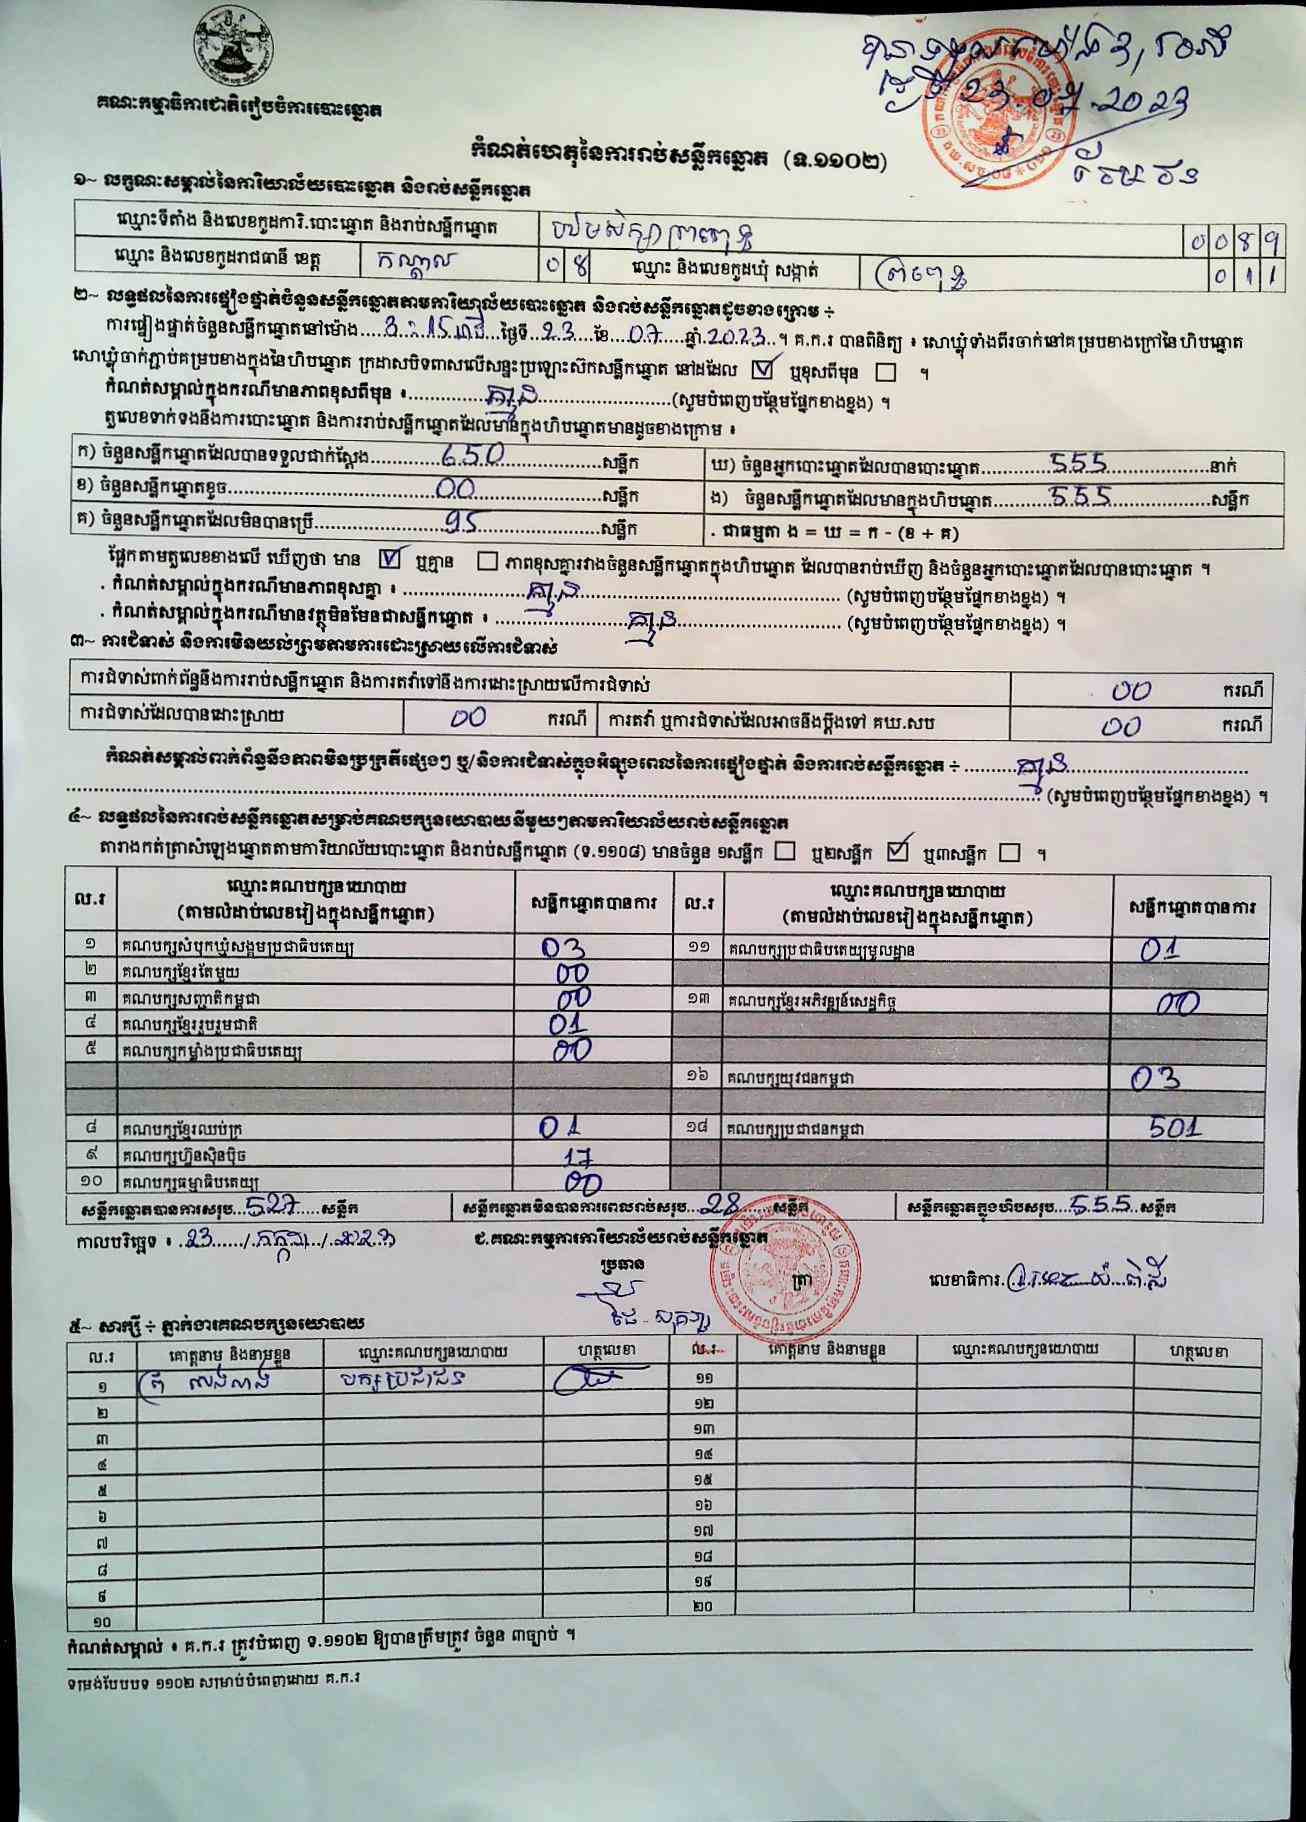 គណៈកម្មាធិការជាតិរៀបចំការបោះឆ្នោត
23.07.2023
កំណត់ហេតុនៃការរាប់សន្លឹកឆ្នោត (ទ.១១០២)
១~ លក្ខណៈសម្គាល់នៃការិយាល័យបោះឆ្នោត និងរាប់សន្លឹកឆ្នោត
ឈ្មោះទីតាំង និងលេខកូដការិ.បោះឆ្នោត និងរាប់សន្លឹកឆ្នោត 0 0 8 9
ឈ្មោះ និងលេខកូដរាជធានី ខេត្ត កណ្តាល 0 8 ឈ្មោះ និងលេខកូដឃុំ សង្កាត់ 0 1 1
២~ លទ្ធផលនៃការផ្ទៀងផ្ទាត់ចំនួនសន្លឹកឆ្នោតតាមការិយាល័យបោះឆ្នោត និងរាប់សន្លឹកឆ្នោតដូចខាងក្រោម ÷
ការផ្ទៀងផ្ទាត់ចំនួនសន្លឹកឆ្នោតនៅម៉ោង....3:15....ថ្ងៃទី.23.ខែ.07.ឆ្នាំ.2023.។ គ.ក.រ បានពិនិត្យ ៖ សោឃ្លុំទាំងពីរចាក់នៅគម្របខាងក្រៅនៃហិបឆ្នោត
សោឃ្លុំចាក់ភ្ជាប់គម្របខាងក្នុងនៃហិបឆ្នោត ក្រដាសបិទពាសលើសន្ទះប្រឡោះស៊កសន្លឹកឆ្នោត នៅដដែល ☑ ឬខុសពីមុន ☐ ។
កំណត់សម្គាល់ក្នុងករណីមានភាពខុសពីមុន ៖......គ្មាន......(សូមបំពេញបន្ថែមផ្នែកខាងខ្នង) ។
តួលេខទាក់ទងនឹងការបោះឆ្នោត និងការរាប់សន្លឹកឆ្នោតដែលមានក្នុងហិបឆ្នោតមានដូចខាងក្រោម ៖
ក) ចំនួនសន្លឹកឆ្នោតដែលបានទទួលជាក់ស្តែង......650......សន្លឹក ឃ) ចំនួនអ្នកបោះឆ្នោតដែលបានបោះឆ្នោត......555......នាក់
ខ) ចំនួនសន្លឹកឆ្នោតខូច......00......សន្លឹក ង) ចំនួនសន្លឹកឆ្នោតដែលមានក្នុងហិបឆ្នោត......555......សន្លឹក
គ) ចំនួនសន្លឹកឆ្នោតដែលមិនបានប្រើ......95......សន្លឹក . ជាធម្មតា ង = ឃ = ក - (ខ + គ)
ផ្អែកតាមតួលេខខាងលើ ឃើញថា មាន ☑ ឬគ្មាន ☐ ភាពខុសគ្នារវាងចំនួនសន្លឹកឆ្នោតក្នុងហិបឆ្នោត ដែលបានរាប់ឃើញ និងចំនួនអ្នកបោះឆ្នោតដែលបានបោះឆ្នោត ។
. កំណត់សម្គាល់ក្នុងករណីមានភាពខុសគ្នា ៖ ......គ្មាន...... (សូមបំពេញបន្ថែមផ្នែកខាងខ្នង) ។
. កំណត់សម្គាល់ក្នុងករណីមានវត្ថុមិនមែនជាសន្លឹកឆ្នោត ៖ ......គ្មាន...... (សូមបំពេញបន្ថែមផ្នែកខាងខ្នង) ។
៣~ ការជំទាស់ និងការមិនយល់ព្រមតាមការដោះស្រាយលើការជំទាស់
ការជំទាស់ពាក់ព័ន្ធនឹងការរាប់សន្លឹកឆ្នោត និងការតវ៉ាទៅនឹងការដោះស្រាយលើការជំទាស់ 00 ករណី
ការជំទាស់ដែលបានដោះស្រាយ 00 ករណី ការតវ៉ា ឬការជំទាស់ដែលអាចនឹងប្តឹងទៅ គឃ.សប 00 ករណី
កំណត់សម្គាល់ពាក់ព័ន្ធនឹងភាពមិនប្រក្រតីផ្សេងៗ ឬ/និងការជំទាស់ក្នុងអំឡុងពេលនៃការផ្ទៀងផ្ទាត់ និងការរាប់សន្លឹកឆ្នោត ÷ ......គ្មាន......
...... (សូមបំពេញបន្ថែមផ្នែកខាងខ្នង) ។
៤~ លទ្ធផលនៃការរាប់សន្លឹកឆ្នោតសម្រាប់គណបក្សនយោបាយនីមួយៗតាមការិយាល័យរាប់សន្លឹកឆ្នោត
តារាងកត់ត្រាសំឡេងឆ្នោតតាមការិយាល័យបោះឆ្នោត និងរាប់សន្លឹកឆ្នោត (ទ.១១០៨) មានចំនួន ១សន្លឹក ☐ ឬ២សន្លឹក ☑ ឬ៣សន្លឹក ☐ ។
ល.រ ឈ្មោះគណបក្សនយោបាយ (តាមលំដាប់លេខរៀងក្នុងសន្លឹកឆ្នោត) សន្លឹកឆ្នោតបានការ ល.រ ឈ្មោះគណបក្សនយោបាយ (តាមលំដាប់លេខរៀងក្នុងសន្លឹកឆ្នោត) សន្លឹកឆ្នោតបានការ
១ គណបក្សសំបុកឃ្មុំសង្គមប្រជាធិបតេយ្យ 03 ១១ គណបក្សប្រជាធិបតេយ្យមូលដ្ឋាន 01
២ គណបក្សខ្មែរតែមួយ 00
៣ គណបក្សសញ្ជាតិកម្ពុជា 00 ១៣ គណបក្សខ្មែរអភិវឌ្ឍន៍សេដ្ឋកិច្ច 00
៤ គណបក្សខ្មែររួបរួមជាតិ 01
៥ គណបក្សកម្លាំងប្រជាធិបតេយ្យ 00
១៦ គណបក្សយុវជនកម្ពុជា 03
៨ គណបក្សខ្មែរឈប់ក្រ 01 ១៨ គណបក្សប្រជាជនកម្ពុជា 501
៩ គណបក្សហ៊្វុនស៊ិនប៉ិច 17
១០ គណបក្សធម្មាធិបតេយ្យ 00
សន្លឹកឆ្នោតបានការសរុប...527......សន្លឹក សន្លឹកឆ្នោតមិនបានការពេលរាប់សរុប...28......សន្លឹក សន្លឹកឆ្នោតក្នុងហិបសរុប...555..សន្លឹក
កាលបរិច្ឆេទ ៖ .23....../.កក្កដា../..2023 ជ.គណៈកម្មការការិយាល័យរាប់សន្លឹកឆ្នោត
ប្រធាន ត្រា លេខាធិការ.
៥~ សាក្សី ÷ ភ្នាក់ងារគណបក្សនយោបាយ
ល.រ គោត្តនាម និងនាមខ្លួន ឈ្មោះគណបក្សនយោបាយ ហត្ថលេខា ល.រ គោត្តនាម និងនាមខ្លួន ឈ្មោះគណបក្សនយោបាយ ហត្ថលេខា
១ បក្សប្រជាជន ១១
២ ១២
៣ ១៣
៤ ១៤
៥ ១៥
៦ ១៦
៧ ១៧
៨ ១៨
៩ ១៩
១០ ២០
កំណត់សម្គាល់ ៖ គ.ក.រ ត្រូវបំពេញ ទ.១១០២ ឱ្យបានត្រឹមត្រូវ ចំនួន ៣ច្បាប់ ។
ទម្រង់បែបបទ ១១០២ សម្រាប់បំពេញដោយ គ.ក.រ